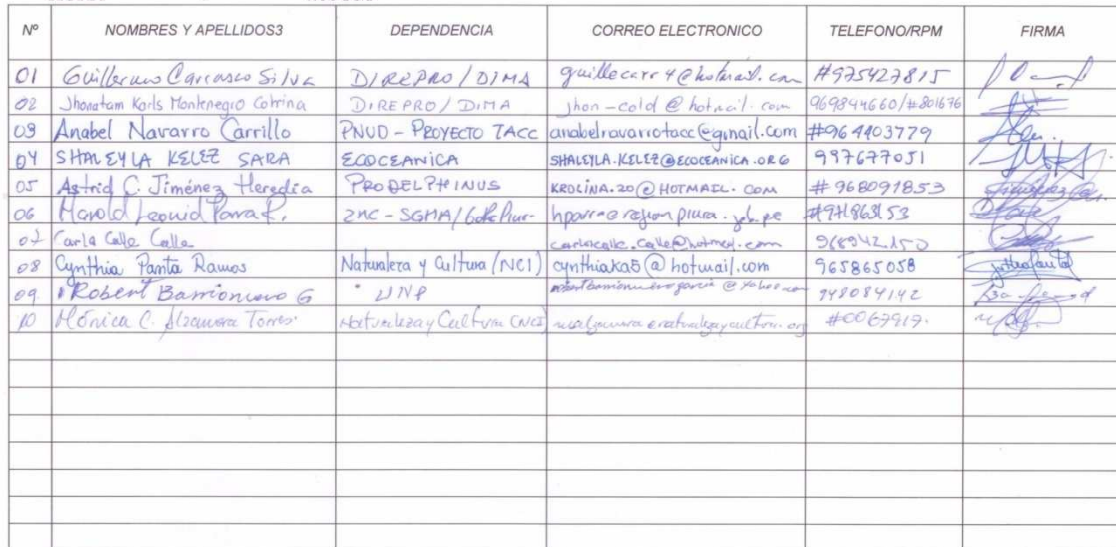 Nº NOMBRES Y APELLIDOS3 DEPENDENCIA CORREO ELECTRONICO TELEFONO/RPM FIRMA
01 Guillermo Carrasco Silva DIREPRO / DIMA guillecarr4@hotmail.com #975427815
02 Jhonatam Karls Montenegro Cotrina DIREPRO / DIMA jhon-cold@hotmail.com 969844660/#801676
03 Anabel Navarro Carrillo PNUD - PROYECTO TACC anabelnavarrotacc@gmail.com #964403779
04 SHALEYLA KELEZ SARA ECOCEANICA SHALEYLA.KELEZ@ECOCEANICA.ORG 997677051
05 Astrid C. Jiménez Heredia PRODELPHINUS KROLINA.20@HOTMAIL.COM #968091853
06 Harold Leonid Parra R. ZMC - SGMA/ #971863153
07 Carla Calle Calle carlacalle.calle@hotmail.com 968942150
08 Cynthia Panta Ramos Naturaleza y Cultura (NCI) cynthiaka5@hotmail.com 965865058
09 Robert Barrionuevo G UNP robertbarrionuevogarcia@yahoo.com 948084142
10 Mónica C. Alzamora Torres Naturaleza y Cultura (NCI) #0067917